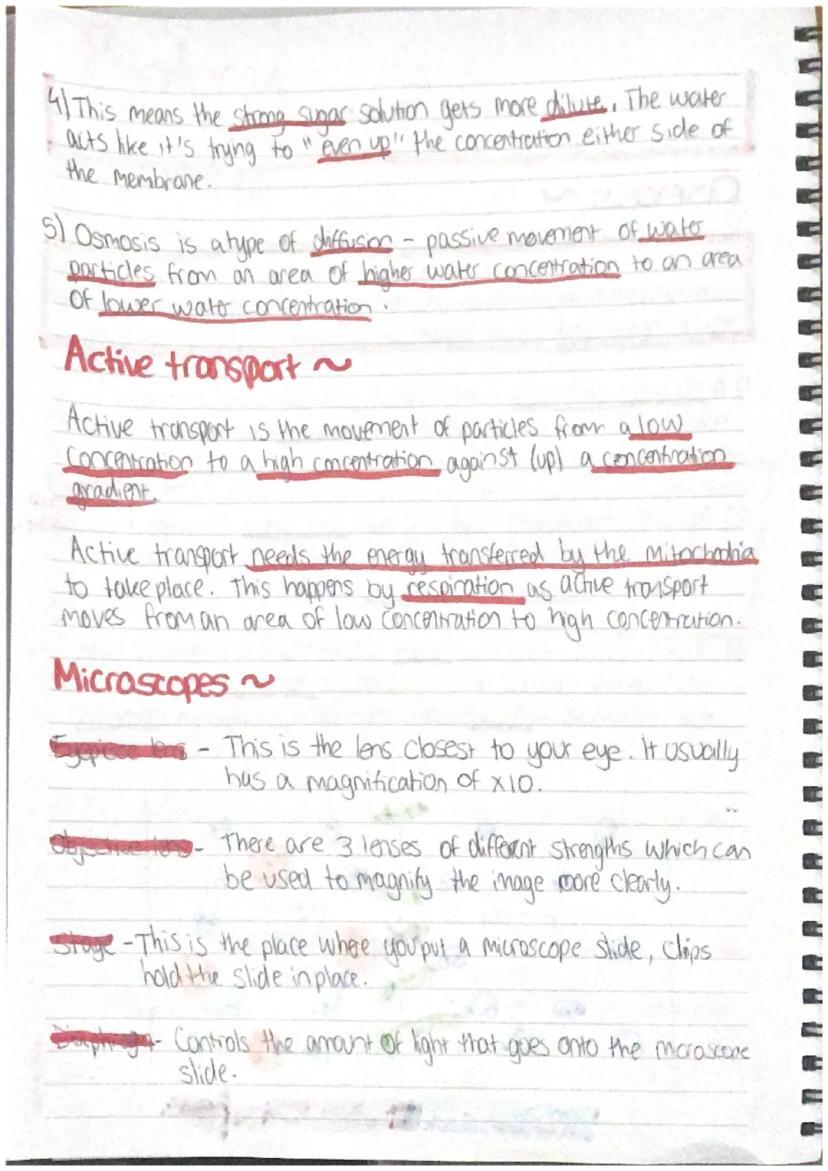 4) This means the strong sugar solution gets more dilute. The water
acts like it's trying to "even up" the concentration either side of
the membrane.
5) Osmosis is a type of diffusion - passive movement of water
particles from an area of higher water concentration to an area
of lower water concentration.
Active transport ~
Active transport is the movement of particles from a low
concentration to a high concentration against (up) a concentration
gradient.
Active transport needs the energy transferred by the mitochodria
to take place. This happens by respiration as active transport
moves from an area of low concentration to high concentration.
Microscopes ~
Eyepiece lens - This is the lens closest to your eye. It usually
has a magnification of x10.
Objective lens - There are 3 lenses of different strengths which can
be used to magnify the image more clearly.
Stage - This is the place where you put a microscope slide, clips
hold the slide in place.
- Controls the amount of light that goes onto the microscope
slide.